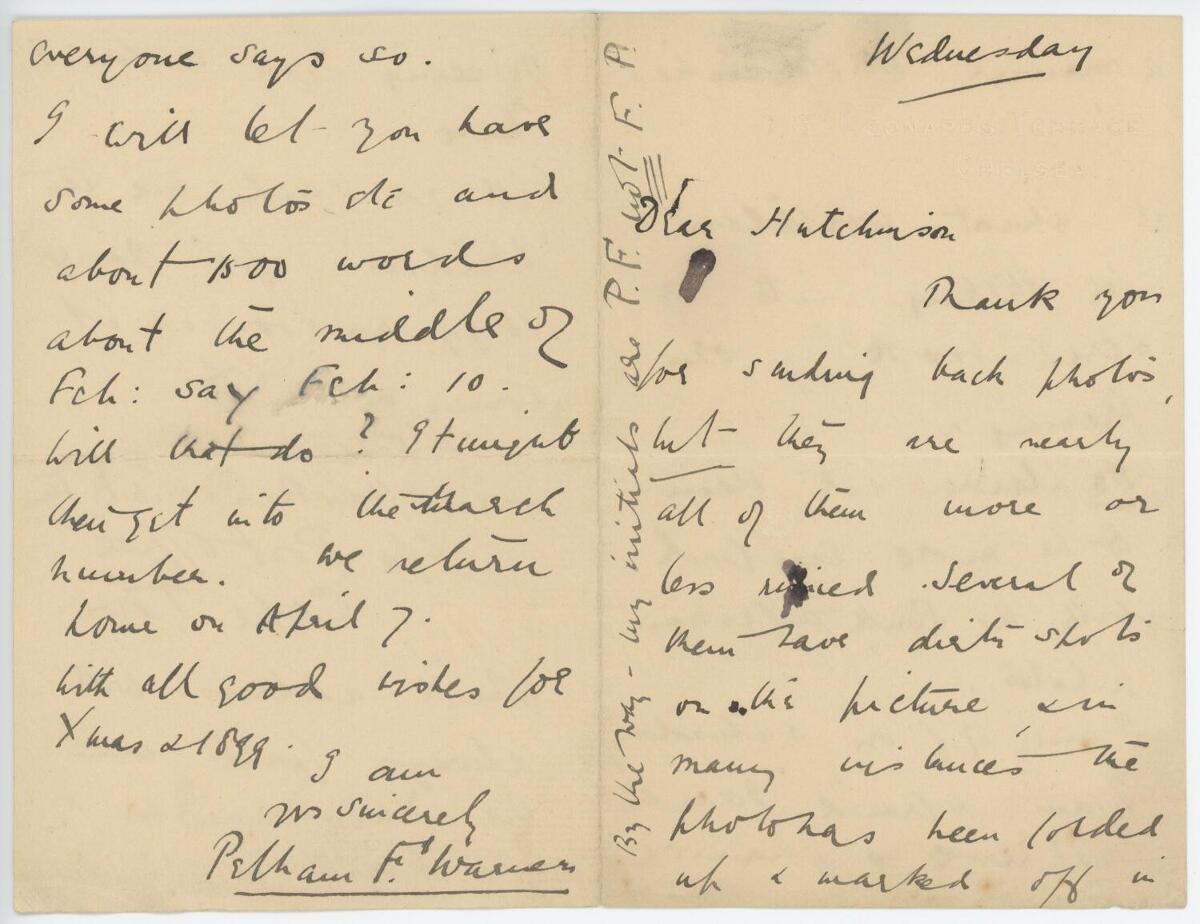 Wednesday
Leonard's Terrace
Chelsea
Dear Hutchinson
Thank you
for sending back photos,
but they are nearly
all of them more or
less ruined. Several of
them have dirty spots
on the picture, & in
many instances the
photo has been folded
up & marked off in
By the way - my initials are P.F. not F. A
everyone says so.
I will let you have
some photos etc and
about 1500 words
about the middle of
Feb: say Feb: 10.
Will that do? It might
then get into the March
number. We return
home on April 7.
With all good wishes for
Xmas & 1899.
I am
yrs sincerely
Pelham F. Warner